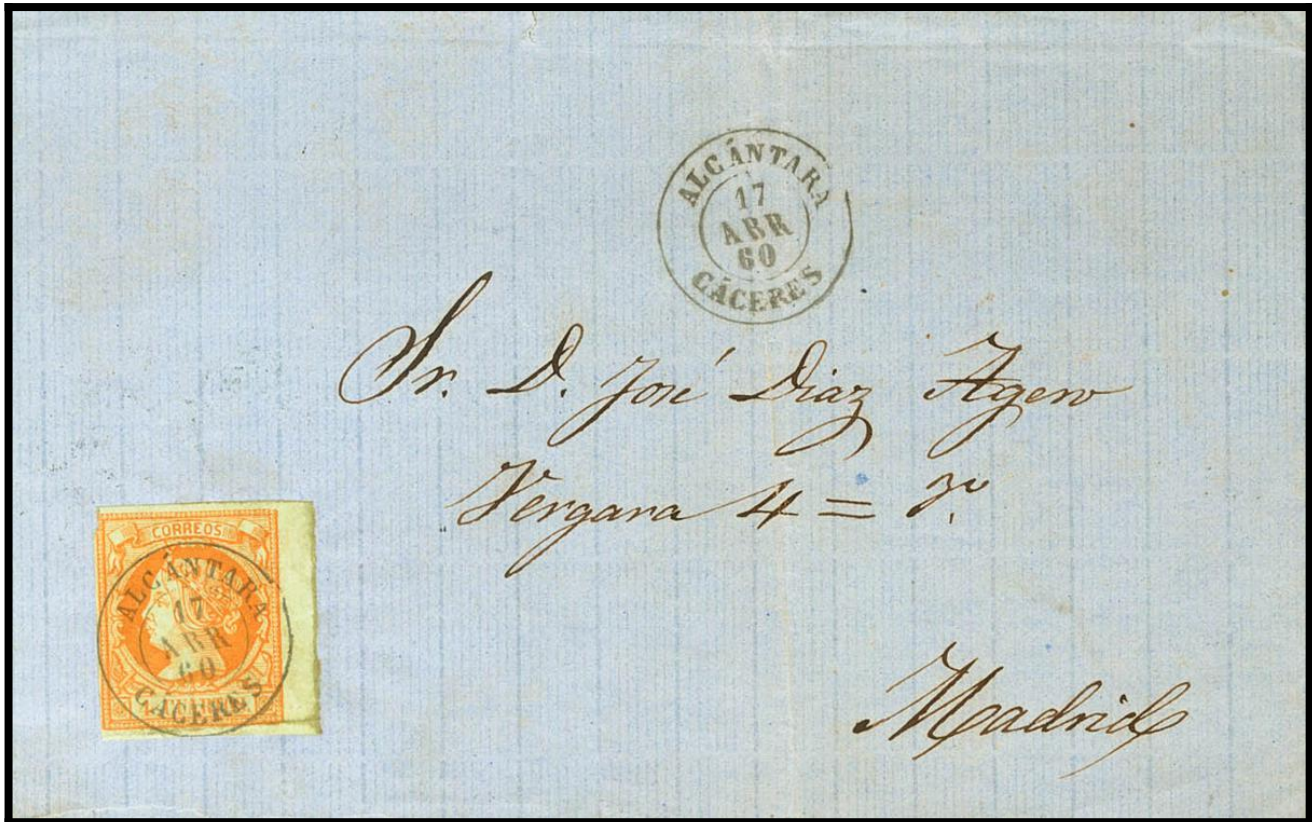 ALCÁNTARA
17
ABR
60
CÁCERES
Sr. D. José Diaz Agero
Vergara 4 =
Madrid
CORREOS
ALCÁNTARA
17
ABR
60
CÁCERES